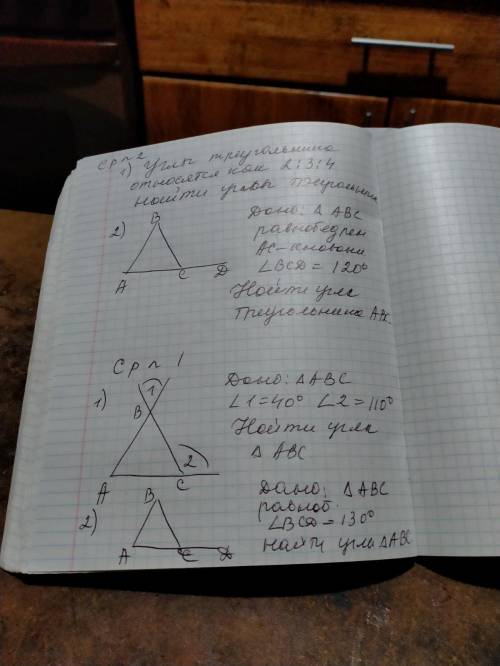 Ср № 2
1) Углы треугольника
относятся как 2:3:4
Найти углы треугольн
2)
B
A
C
D
Дано: △ ABC
равнобедрен
AC-
∠BCD = 120°
Найти углы
треугольника ABC
Ср № 1
1)
1
B
2
A
C
Дано: △ABC
∠1=40° ∠2=110°
Найти углы
△ ABC
2)
B
A
C
D
Дано: △ABC
равноб.
∠BCD = 130°
найти углы △ABC